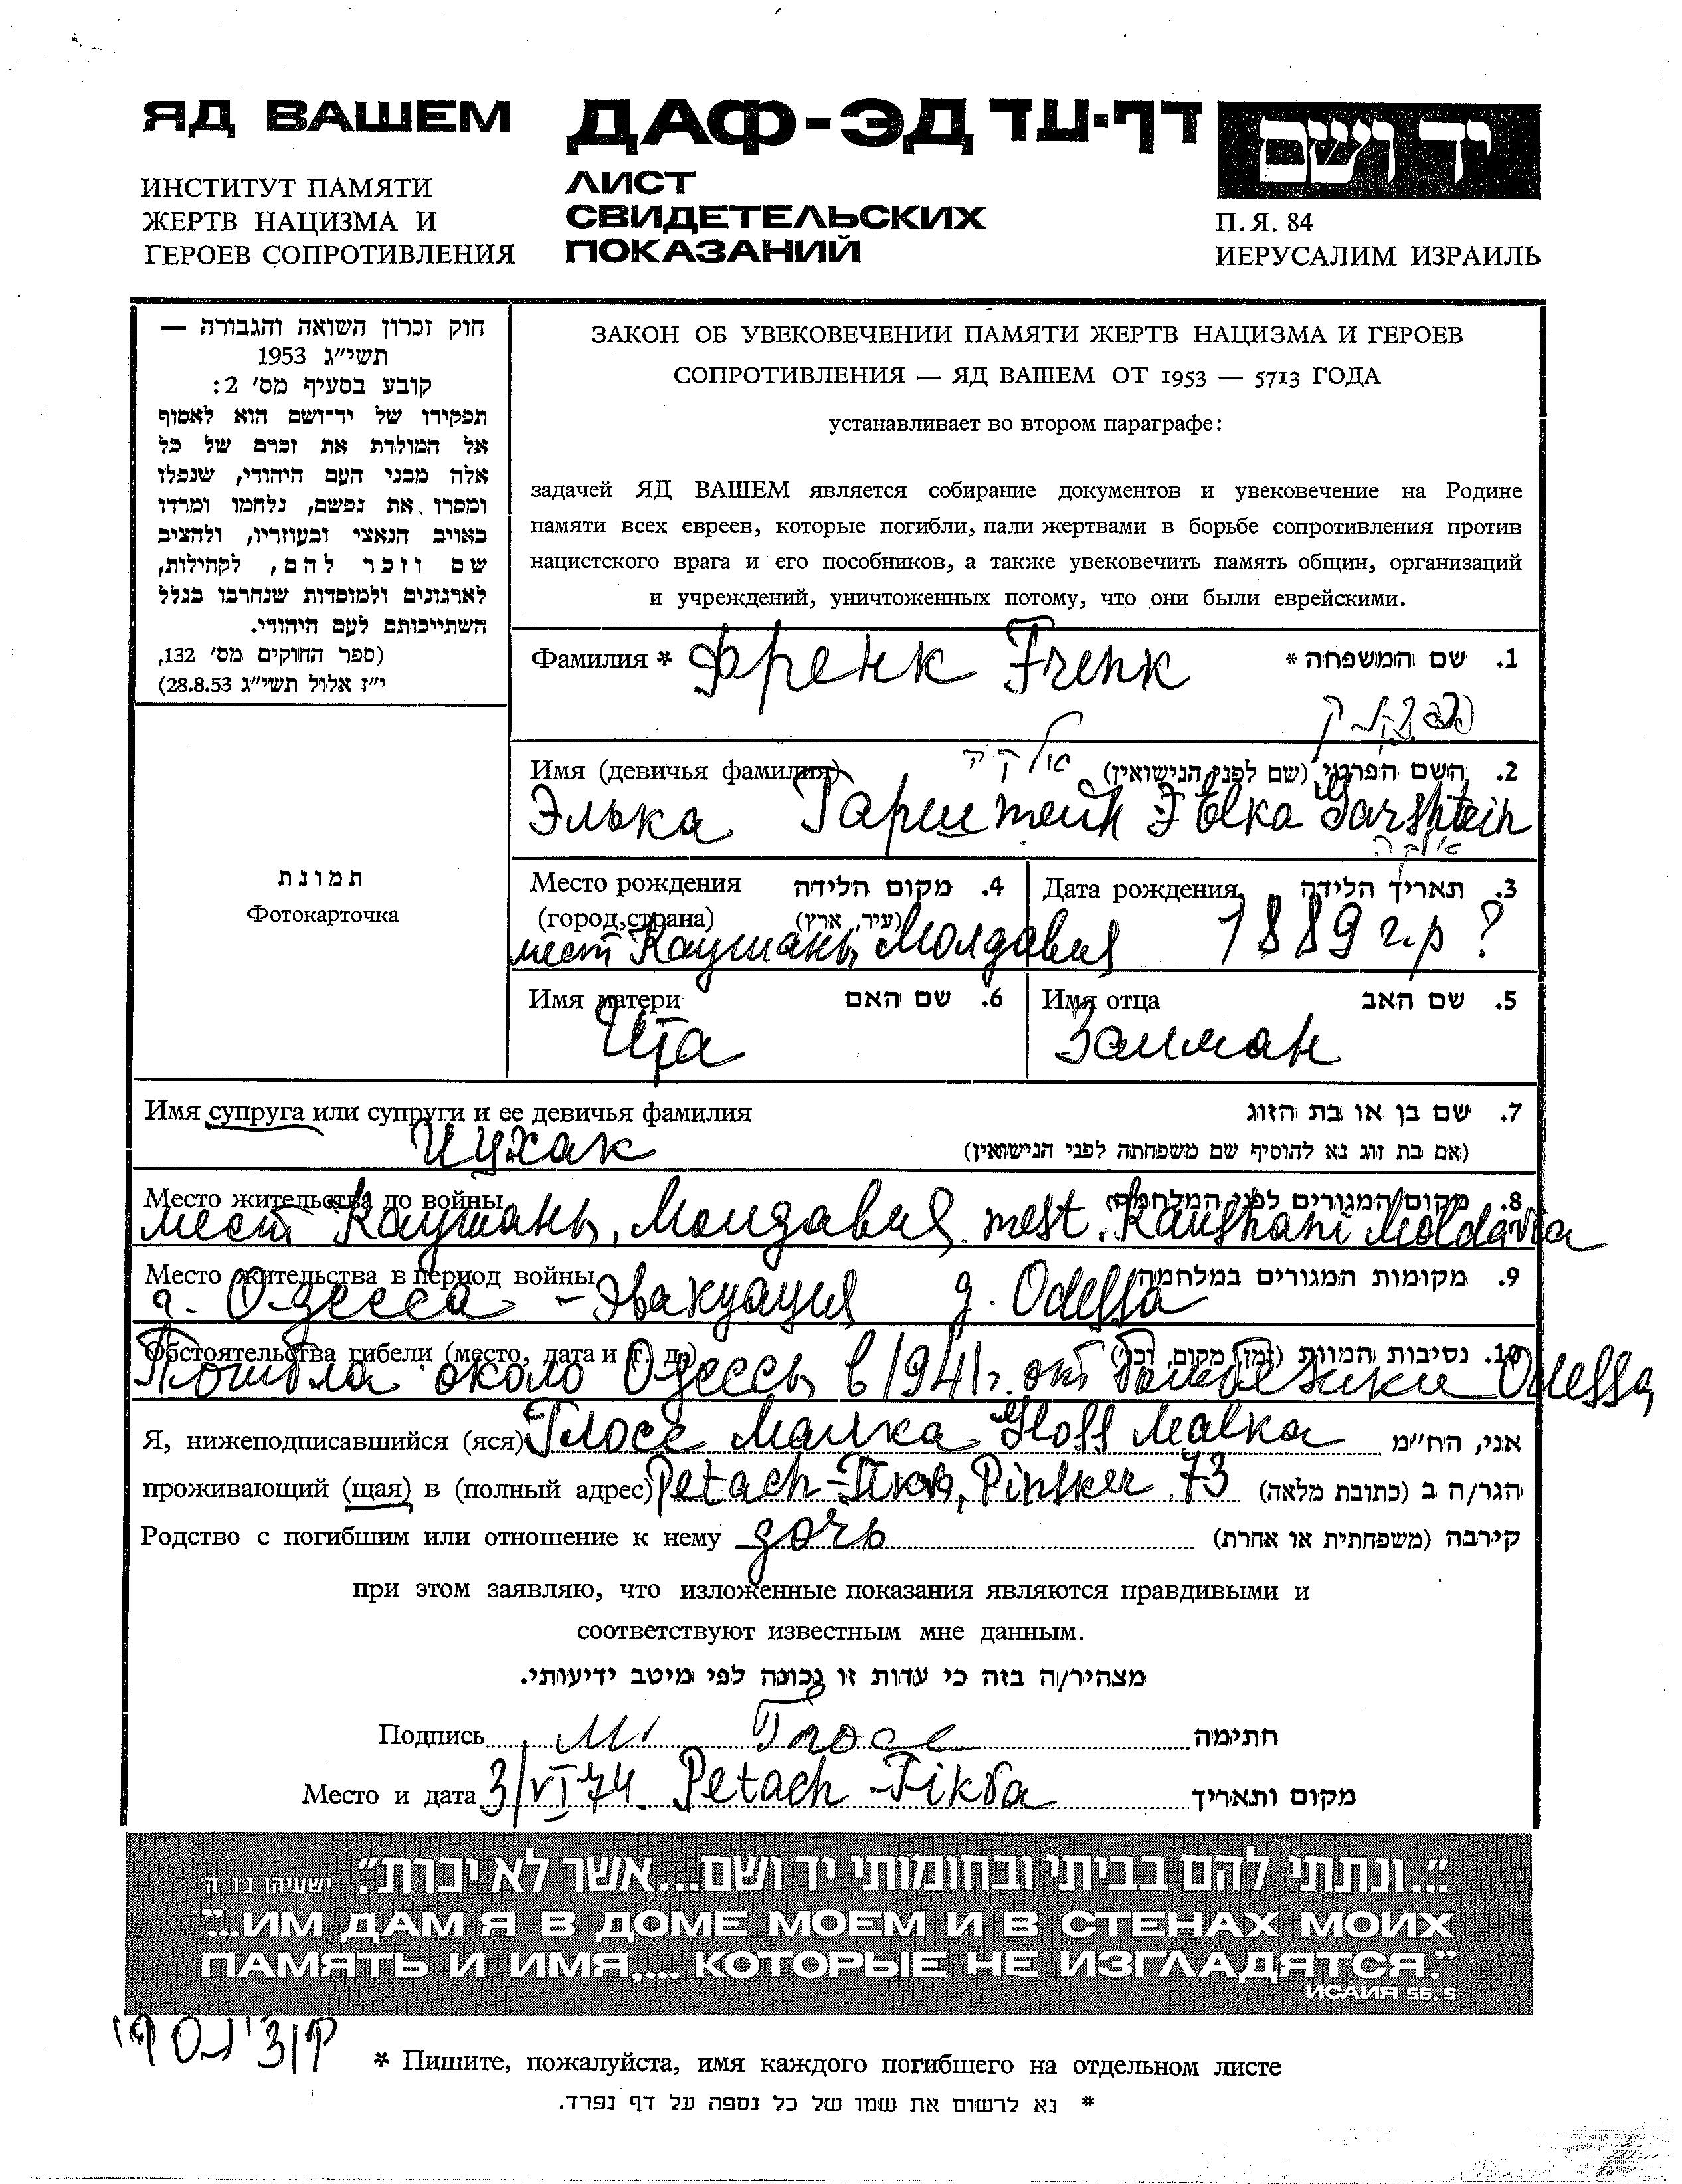 ЯД ВАШЕМ
ИНСТИТУТ ПАМЯТИ
ЖЕРТВ НАЦИЗМА И
ГЕРОЕВ СОПРОТИВЛЕНИЯ
ДАФ-ЭД דף-עד
ЛИСТ
СВИДЕТЕЛЬСКИХ
ПОКАЗАНИЙ
יד ושם
П. Я. 84
ИЕРУСАЛИМ ИЗРАИЛЬ
חוק זכרון השואה והגבורה —
תשי״ג 1953
קובע בסעיף מס׳ 2:
תפקידו של יד־ושם הוא לאסוף
אל המולדת את זכרם של כל
אלה מבני העם היהודי, שנפלו
ומסרו את נפשם, נלחמו ומרדו
באויב הנאצי ובעוזריו, ולהציב
שם וזכר להם, לקהילות,
לארגונים ולמוסדות שנחרבו בגלל
השתייכותם לעם היהודי.
(ספר החוקים מס׳ 132,
י״ז אלול תשי״ג 28.8.53)
תמונת
Фотокарточка
ЗАКОН ОБ УВЕКОВЕЧЕНИИ ПАМЯТИ ЖЕРТВ НАЦИЗМА И ГЕРОЕВ
СОПРОТИВЛЕНИЯ — ЯД ВАШЕМ ОТ 1953 — 5713 ГОДА
устанавливает во втором параграфе:
задачей ЯД ВАШЕМ является собирание документов и увековечение на Родине
памяти всех евреев, которые погибли, пали жертвами в борьбе сопротивления против
нацистского врага и его пособников, а также увековечить память общин, организаций
и учреждений, уничтоженных потому, что они были еврейскими.
Фамилия * Френк Frenk 1. שם המשפחה *
Имя (девичья фамилия) 2. השם הפרטי (שם לפני הנישואין)
Элька Гарштейн Elka Garshtein
Место рождения 4. מקום הלידה
(город, страна) (עיר, ארץ)
мест Каушань, Молдавия
Дата рождения 3. תאריך הלידה
1889 г.р ?
Имя матери 6. שם האם
Ита
Имя отца 5. שם האב
Залман
Имя супруга или супруги и ее девичья фамилия 7. שם בן או בת הזוג
(אם בת זוג נא להוסיף שם משפחתה לפני הנישואין)
Ицхак
Место жительства до войны 8. מקום המגורים לפני המלחמה
мест Каушань, Молдавия mest. Kaushani Moldavia
Место жительства в период войны 9. מקומות המגורים במלחמה
г. Одесса – Эвакуация g. Odessa
Обстоятельства гибели (место, дата и т. д.) 10. נסיבות המוות (זמן, מקום, וכו׳)
Погибла около Одессы в 1941 г. от бомбежки Odessa
Я, нижеподписавшийся (яся) Глосс Малка Gloss Malka אני, הח״מ
проживающий (щая) в (полный адрес) Petach-Tikva, Pinsker 73 הגר/ה ב (כתובת מלאה)
Родство с погибшим или отношение к нему дочь קירבה (משפחתית או אחרת)
при этом заявляю, что изложенные показания являются правдивыми и
соответствуют известным мне данным.
מצהיר/ה בזה כי עדות זו נכונה לפי מיטב ידיעותי.
Подпись М. Глосс חתימה
Место и дата 3/VI 74. Petach-Tikva מקום ותאריך
"...ונתתי להם בביתי ובחומותי יד ושם...אשר לא יכרת." ישעיהו נ״ו, ה׳
"...ИМ ДАМ Я В ДОМЕ МОЕМ И В СТЕНАХ МОИХ
ПАМЯТЬ И ИМЯ,... КОТОРЫЕ НЕ ИЗГЛАДЯТСЯ."
ИСАИЯ 56.5
* Пишите, пожалуйста, имя каждого погибшего на отдельном листе
* נא לרשום את שמו של כל נספה על דף נפרד.